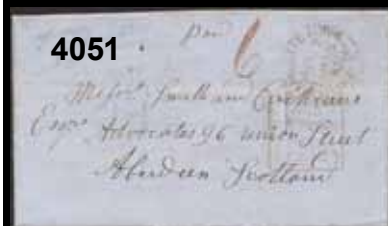 4051
Paid 6
Messrs. Smith and Cochrane
Esqrs. Advocates 96 Union Street
Aberdeen Scotland